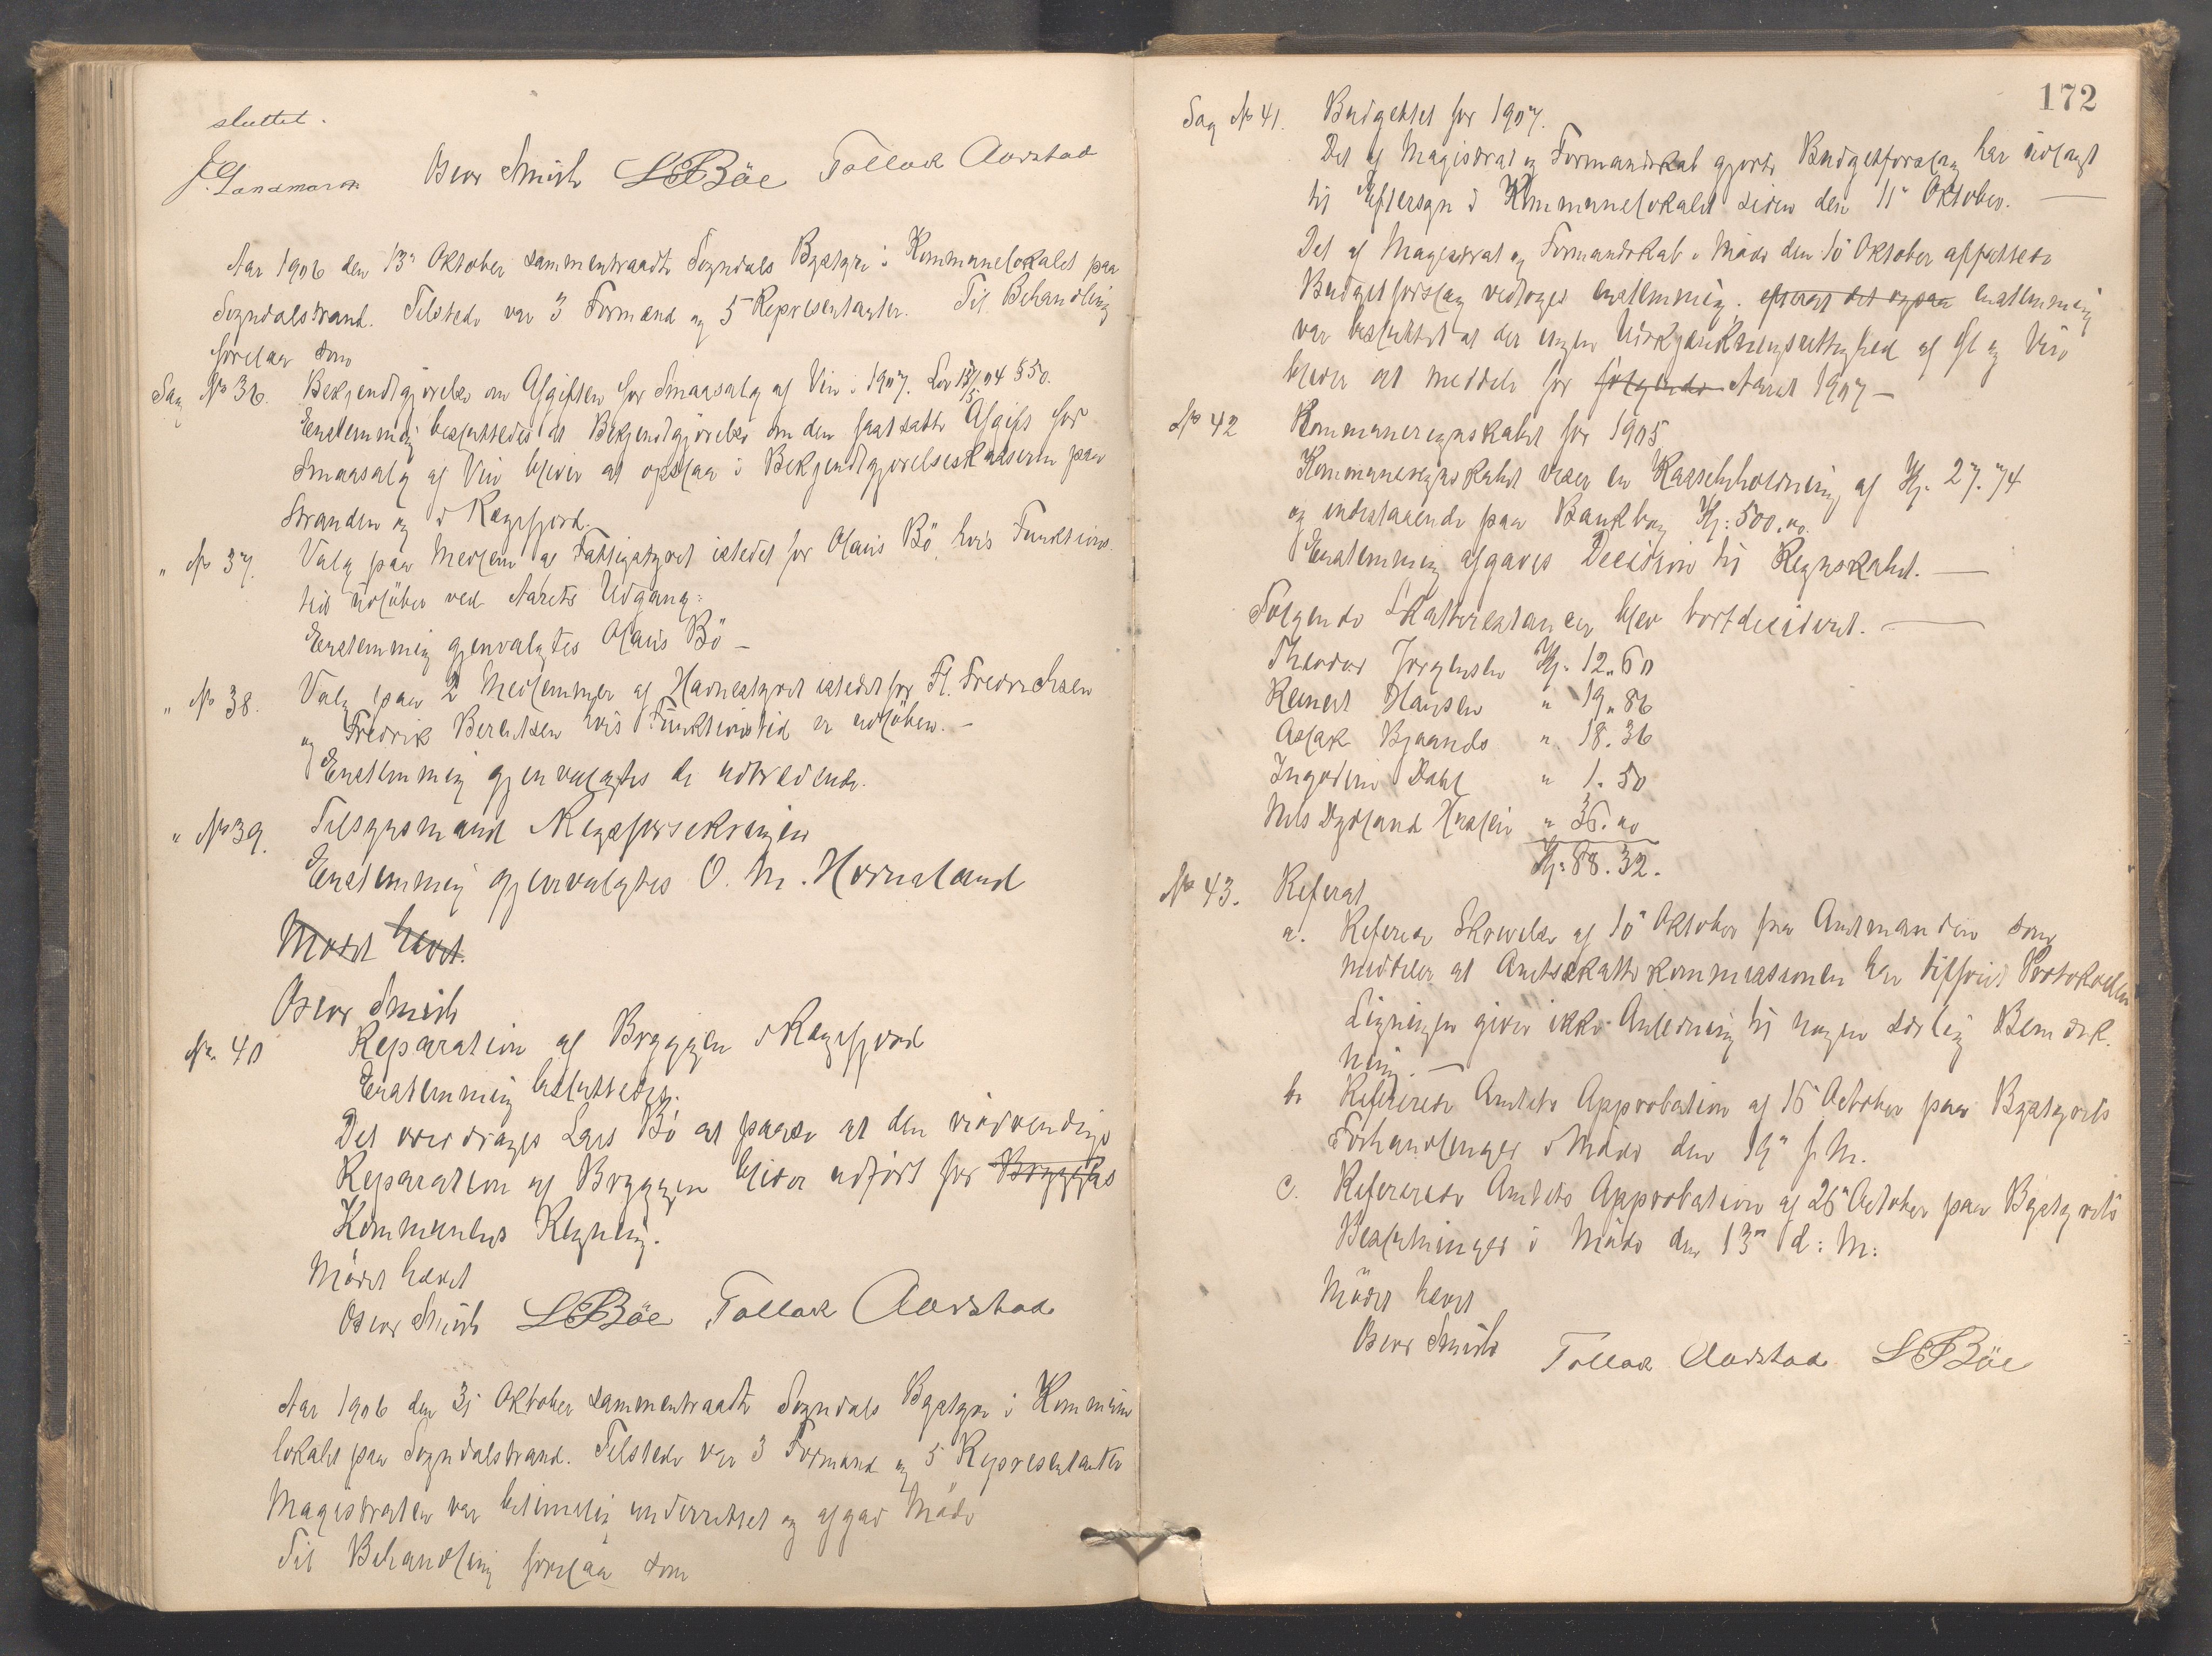 sluttet.
J. Landmark Oscar Smith LBBöe Tollak Aarstad
Aar 1906 den 13de Oktober sammentraadte Sogndals Bystyre i Kommunelokalet paa
Sogndalstrand. Tilstede var 3 Formænd og 5 Repræsentanter. Til Behandling
forelaa som
Sag No 36. Bekjendtgjørelse om Afgiften for Smaasalg af Vin i 1907. Lov 15/5 04 § 50.
Enstemmig besluttedes at Bekjendtgjörelse om den fastsatte Afgift for
Smaasalg af Vin bliver at opslaa i Bekjendtgjørelseskasserne paa
Stranden og i Rægefjord.
" No 37. Valg paa Medlem af Fattigstyret istedet for Olaus Bö, hvis Funktions-
tid udlöber ved Aarets Udgang.
Enstemmig gjenvalgtes Olaus Bö –
" No 38. Valg paa 2 Medlemmer af Havnestyret istedet for Fl. Fredrichsen
og Fredrik Berentsen hvis Funktionstid er udlöben. –
Enstemmig gjenvalgtes de udtrædende.
" No 39. Tilsynsmand Kreaforsikringen
Enstemmig gjenvalgtes O. M. Hovland
Mödet hævet.
Oscar Smith
No 40 Reparation af Bryggen i Rægefjord
Enstemmig besluttedes.
Det overdrages Lars Bö at paase at den nödvendige
Reparation af Bryggen bliver udfört for Bryggens
Kommunens Regning.
Mödet hævet
Oscar Smith LBBöe Tollak Aarstad
Aar 1906 den 31 Oktober sammentraadte Sogndals Bystyre i Kommune
lokalet paa Sogndalstrand. Tilstede var 3 Formænd og 5 Repræsentanter
Magistraten var betimelig underrettet og afgav Möde
Til Behandling forelaa som
172
Sag No 41. Budgettet for 1907.
Det af Magistrat og Formandskab gjorte Budgetforslag har udlagt
til Eftersyn i Kommunelokalet siden den 11te Oktober. —
Det af Magistrat og Formandskab i Möde den 10 Oktober affattede
Budgetforslag vedtoges enstemmig, efterat det ogsaa enstemmig
var besluttet at der ingen Udskjænkningsrettighed af Öl og Vin
bliver at meddele for fölgende Aaret 1907 –
No 42 Kommuneregnskabet for 1905
Kommuneregnskabet viser en Kassebeholdning af Kr. 27.74
og indestaaende paa Bankbog Kr: 500.00.
Enstemmig afgaves Decision til Regnskabet. —
Fölgende Skatterestancer blev bortdecideret. —
Theodor Jörgensen Kr. 12.60
Reinert Hansen " 19.86
Aslak Bjaando " 18.36
Ingvarine Dahl " 1.50
Nils Dydland Hasfein " 36.00
Kr. 88.32.
No 43. Referat
a. Refereret Skrivelse af 10 Oktober fra Amtmanden som
meddeler at Amtsskattekommissionen har tilföiet Protokollen
Ligningen giver ikke Anledning til nogen særlig Bemærk-
ning. —
b. Refereret Amtets Approbation af 15 October paa Bystyrets
Forhandlinger i Möde den 19de f. M.
c. Refereret Amtets Approbation af 26 October paa Bystyrets
Beslutninger i Möde den 13de d: M:
Mödet hævet
Oscar Smith Tollak Aarstad LBBöe